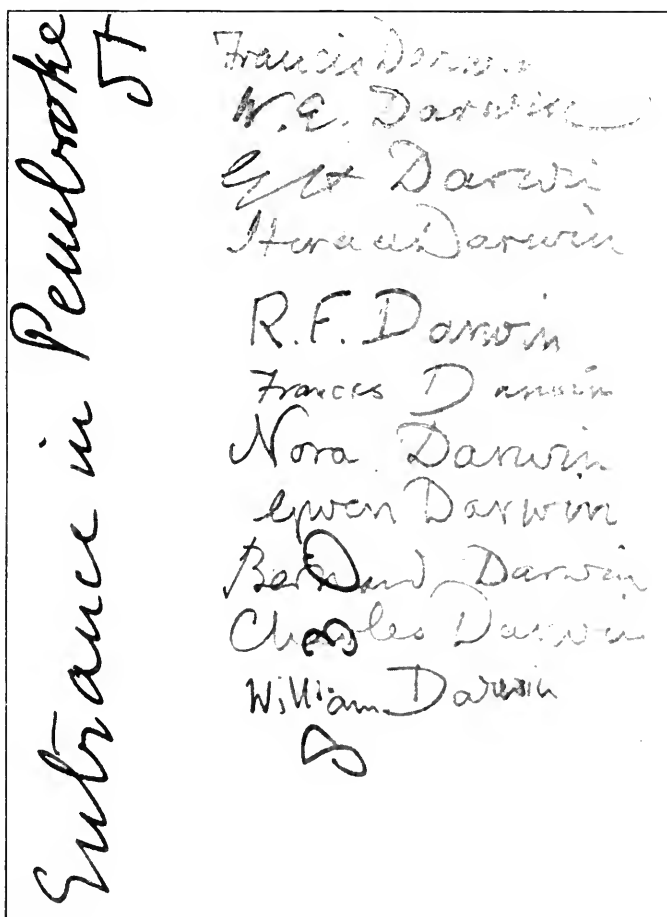 Entrance in Pembroke
St
Francis Darwin
W.E. Darwin
G H Darwin
Horace Darwin
R.F. Darwin
Frances Darwin
Nora Darwin
Gwen Darwin
Bernard Darwin
Charles Darwin
William Darwin
8 30